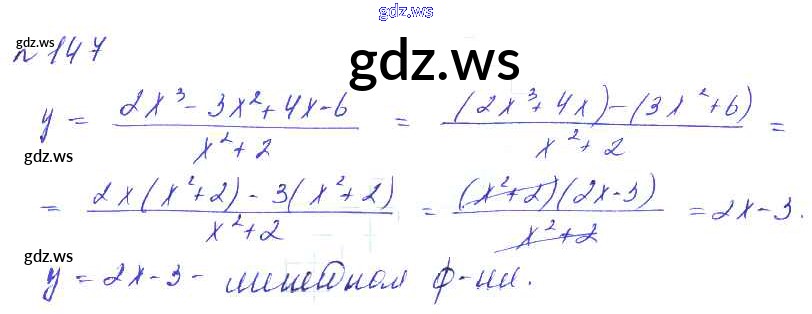 gdz.ws
gdz.ws
n 147
gdz.ws
y = (2x³ - 3x² + 4x - 6)/(x² + 2) = ((2x³ + 4x) - (3x² + 6))/(x² + 2) =
gdz.ws
= (2x(x² + 2) - 3(x² + 2))/(x² + 2) = ((x² + 2)(2x - 3))/(x² + 2) = 2x - 3.
gdz.ws
y = 2x - 3 - ф-ии.